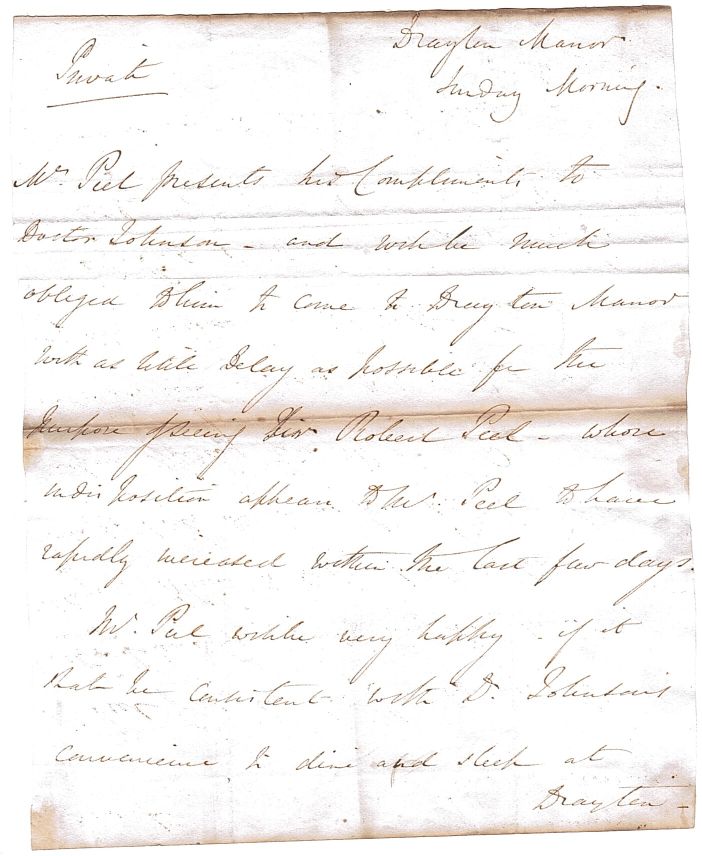 Private
Drayton Manor
Sunday Morning.
Mr. Peel presents his Compliments to
Doctor Johnson - and will be much
obliged to him to come to Drayton Manor
with as little Delay as possible for the
purpose of seeing Sir Robert Peel - whose
indisposition appears to Mr. Peel to have
rapidly increased within the last few days.
Mr. Peel will be very happy - if it
shall be consistent with Dr. Johnson's
convenience to dine and sleep at
Drayton -